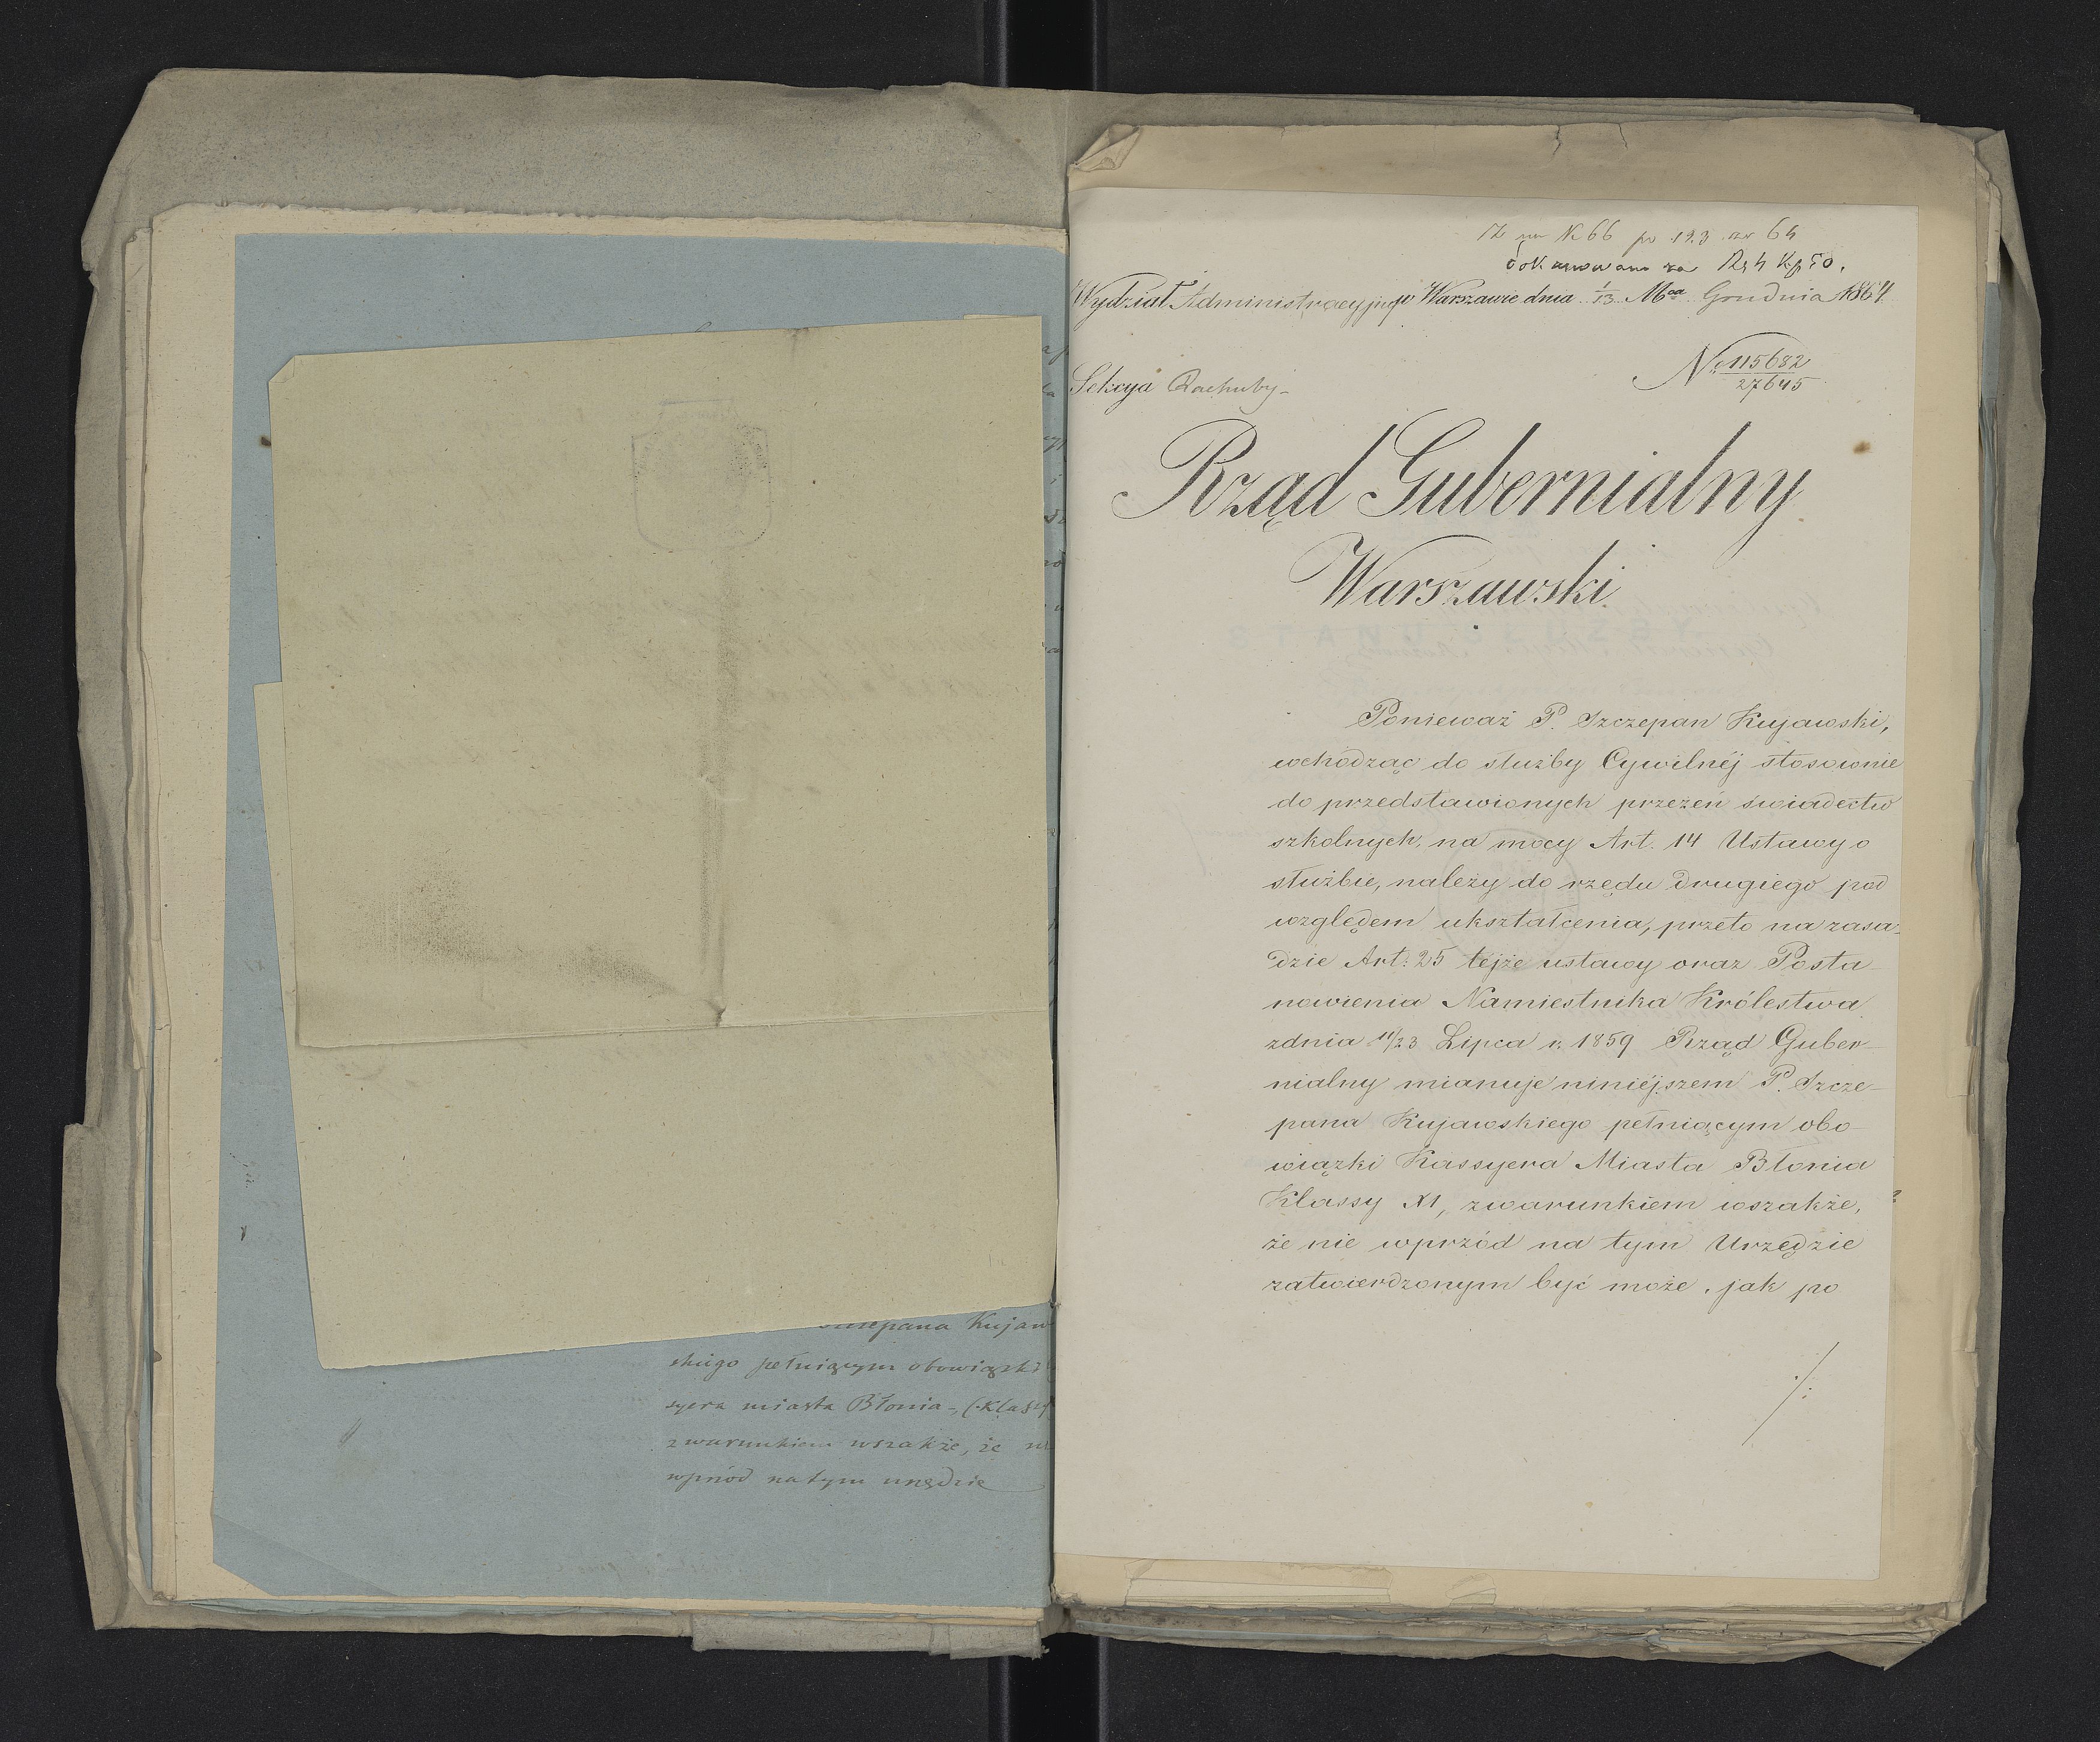 Szczepana Kujaw
skiego pełniącym obowiązki
syera miasta Błonia - (Klassy
z warunkiem wszakże, że
wprzód na tym urzędzie
N 66 po 123 64
Rs 4 Kp 50.
Wydział Administracyjny w Warszawie dnia 1/13 Mca Grudnia 1864
Sekcya Rachuby -
No 115682
27645
Rząd Gubernialny
Warszawski.
Ponieważ P. Szczepan Kujawski,
wchodząc do służby Cywilnéj stosownie
do przedstawionych przezeń świadectw
szkolnych, na mocy Art. 14 Ustawy o
służbie, należy do rzędu drugiego pod
względem ukształcenia, przeto na zasa-
dzie Art: 25 tejże ustawy oraz Posta-
nowienia Namiestnika Królestwa
z dnia 11/23 Lipca r. 1859 Rząd Guber-
nialny mianuje niniéjszem P. Szcze-
pana Kujawskiego pełniącym obo-
wiązki Kassyera Miasta Błonia
Klassy XI, z warunkiem wszakże,
że nie wprzód na tym Urzędzie
zatwierdzonym być może, jak po
./.